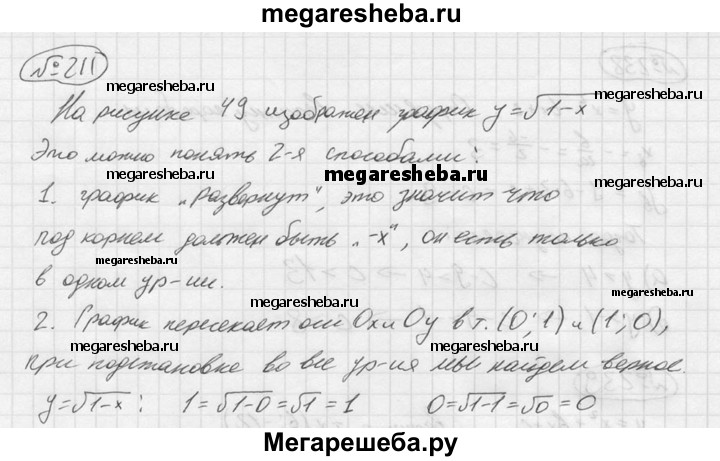 megaresheba.ru
№211
megaresheba.ru megaresheba.ru
На рисунке 49 изображен график y=√1-x
Это можно понять 2-я способами:
megaresheba.ru megaresheba.ru
1. график „развернут", это значит что
под корнем должен быть „-x", он есть только
megaresheba.ru megaresheba.ru
в одном ур-ии.
megaresheba.ru
2. График пересекает оси Ox и Oy в т. (0;1) и (1;0),
megaresheba.ru megaresheba.ru
при подстановке во все ур-ия мы найдем верное.
y=√1-x: 1=√1-0=√1=1 0=√1-1=√0=0
megaresheba.ru megaresheba.ru
Мегарешеба.ру